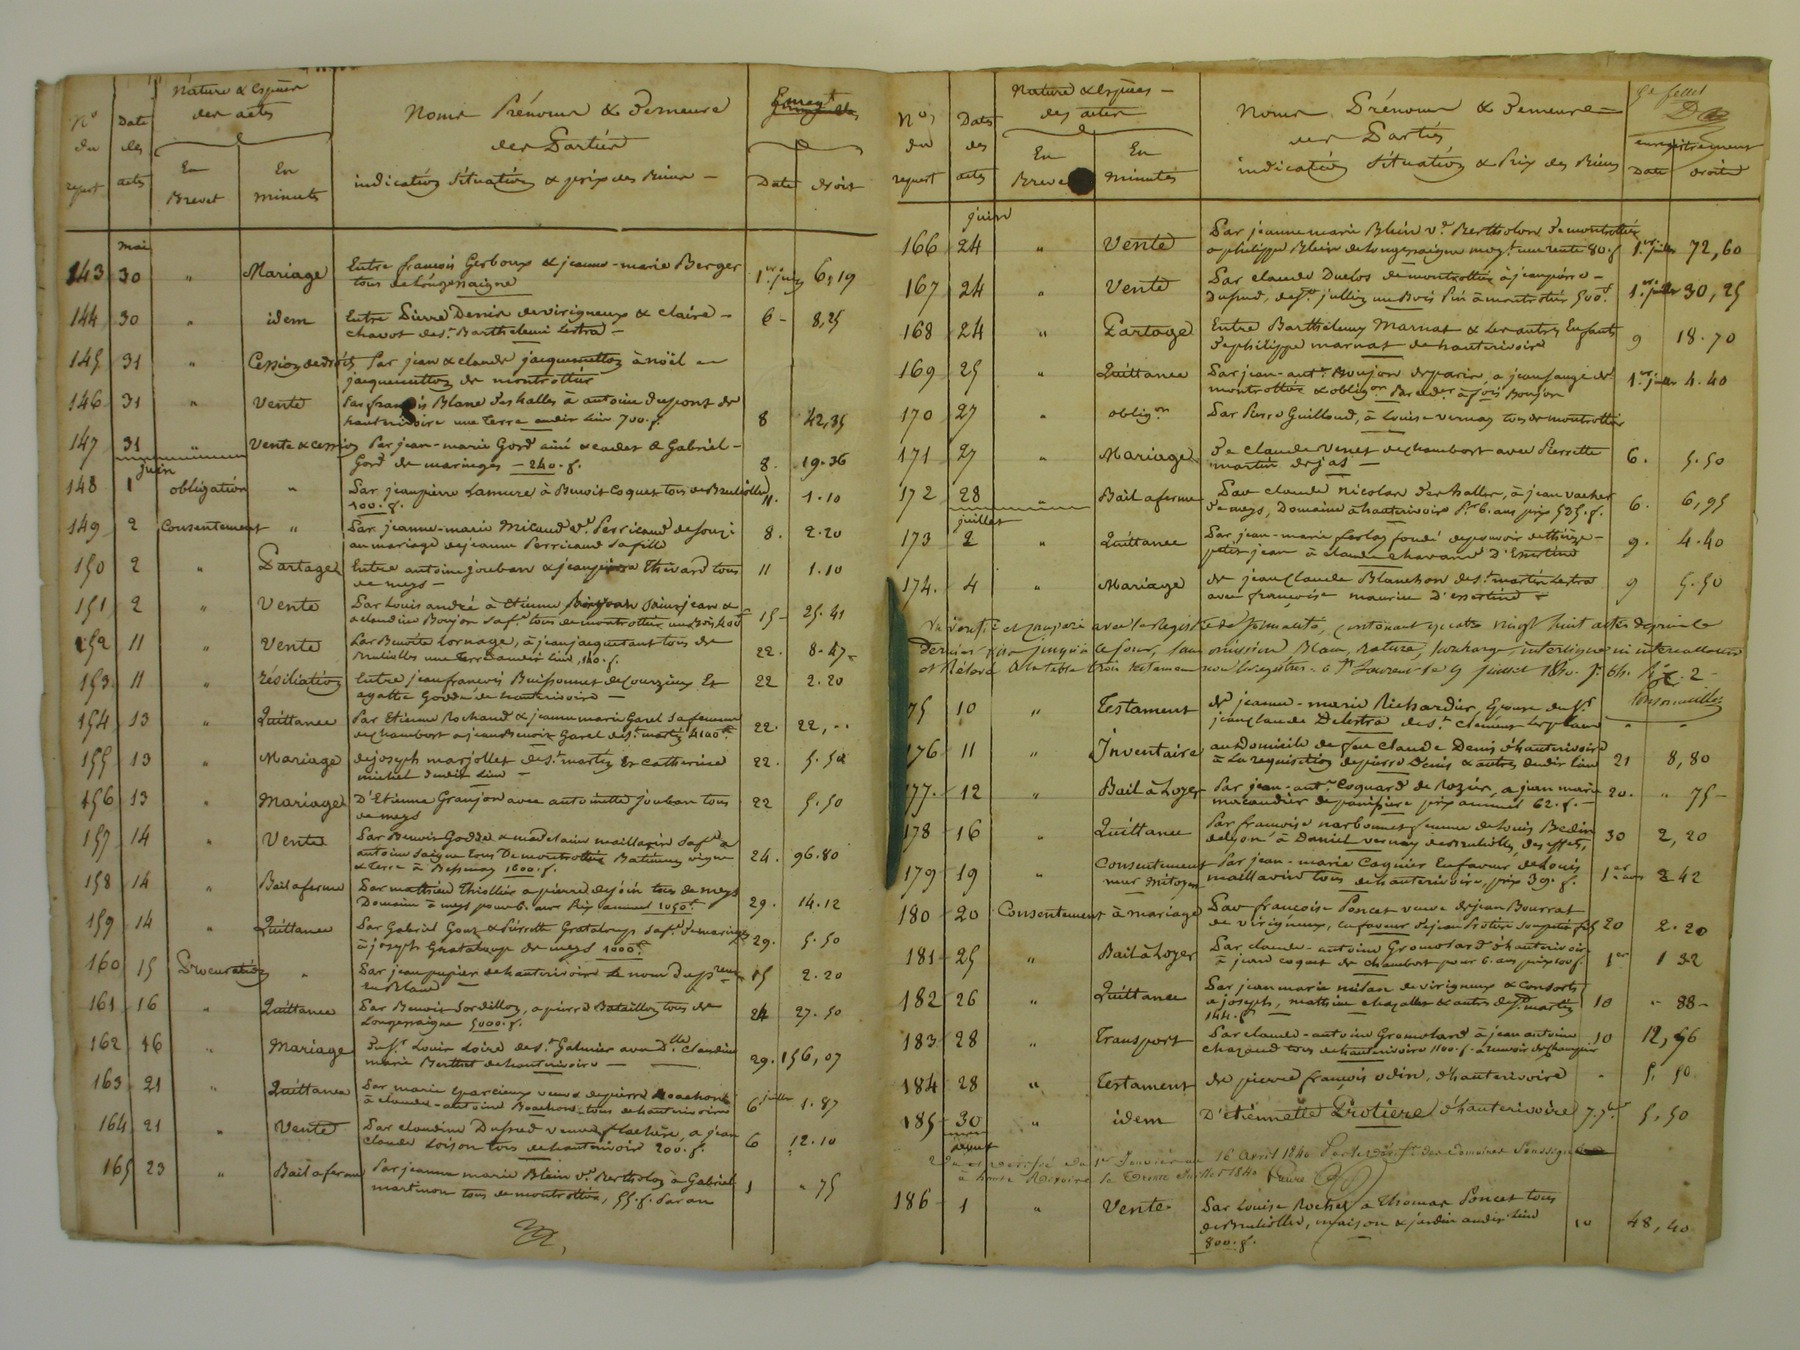 Nature & Espèces
des actes
Noms Prénoms & Demeure
des Parties
indication Situation & prix des Biens
N°
du
repert
Date
des
actes
En
Brevet
En
minutes
Date
droit
mai
143 30 " Mariage Entre françois Gerboux & jeanne-marie Berger 1er juin 6,19
tous de Longessaigne
144 30 " idem Entre Pierre Denis de virigneux & claire 6 - 8,25
chavot de St Barthelemi Lestra
145 31 " Cession de droits Par jean & claude jacquemetton à noël
jacquemetton de montrottier
146 31 " Vente Par françois Blanc des halles à antoine dupont de
hauterivoire une Terre audit lieu 700.f. 8 42,35
147 31 " Vente & cession Par jean-marie Gord ainé & cadet à Gabriel
Gord de maringes - 240.f. 8. 19.36
juin
148 1 obligation " Par jeanpierre Lamure à Benoit Coquet tous de Brullioles 11. 1.10
100.f.
149 2 Consentement " Par jeanne-marie Micaud ve Perricaud de Souzi 8. 2.20
au mariage de jeanne Perricaud sa fille
150 2 " Partage Entre antoine jouban & jeanpierre Thivard tous 11 1.10
de meys
151 2 " Vente Par Louis andré à Etienne St jean &
claudine Boujon sa fe tous de montrottier un Bois 400f 15 - 25.41
152 11 " Vente Par Benoite Lornage, à jean jaquetant tous de
Brullioles une Terre audit lieu, 140.f. 22. 8.47
153 11 " résiliation Entre jean françois Buissonnet de Courzieux Et 22 2.20
agathe Godde de hauterivoire
154 13 " Quittance Par Etienne Rochand & jeanne marie Garel sa femme
de chambost a jean Benoit Garel de St martin 4100f 22. 22,
155 13 " Mariage de joseph marjollet de St martin Et catherine 22. 5.50
michel dudit lieu
156 13 " Mariage D'Etienne Granjon avec antoinette jouban tous 22 5.50
de meys
157 14 " Vente Par Benoit Godde & madelaine maillavin sa fe a
antoine Saigne tous De montrottier Batiment vigne 24. 96.80
& terre à Bessenay 1600.f.
158 14 " Bail a ferme Par mathieu Thiollier a pierre dejoin tous de meys
Domaine à meys pour 6. ans Prix annuel 1050f 29. 14.12
159 14 " Quittance Par Gabriel Gout & Pierrette Grataloup sa fe de maringes 29. 5.50
à joseph Grataloup de meys 1000f
160 15 Procuration " Par jean pupier de hauterivoire le nom du preur 15 2.20
en Blanc
161 16 " Quittance Par Benoit Sordillon, a pierre Bataillon tous de
Longessaigne 5000.f. 24 27.50
162 16 " Mariage De Sr Louis Loire de St Galmier avec Dlle Claudine
marie Berthet de hauterivoire 29. 156,07
163 21 " Quittance Par marie Eparcieux veuve de pierre Boachon
à claude-antoine Boachon tous de hauterivoire 6 juillet 1.87
164 21 " Vente Par claudine Dufud veuve flachère, a jean
claude Loison tous de hauterivoire 200.f. 6 12.10
165 23 " Bail a ferme Par jeanne marie Blein ve Bertholon à Gabriel
martinon tous de montrottier, 55.f. Par an 1 " 75
Nature & Espèces
des actes
Noms Prénoms & Demeure
des Parties
indication Situation & Prix des Biens
Nos
du
repert
Dates
des
actes
En
Brevet
En
minutes
enregistrement
Date droits
juin
166 24 " Vente Par jeanne marie Blein ve Bertholon de montrottier
a philippe Blein de Longessaigne moyt une rente 80.f 1er juillet 72,60
167 24 " Vente Par claude Duclos de montrottier à jeanpierre
Dufud, de St jullien un Bois Pin à montrottier 500f. 1er juillet 30,25
168 24 " Partage Entre Barthélemy Marnat & Les autres Enfants
de philippe marnat de hauterivoire 9 18.70
169 25 " Quittance Par jean-ante Boujon de paris a jean Sauge de
montrottier & obligon Par led. à fois Boujon 1er juillet 4.40
170 27 " obligon Par Pierre Guilloud, à Louise vernay tous de montrottier
171 27 " Mariage De claude Venet de chambost avec Pierrette
martin de jas 6. 5.50
172 28 " Bail a ferme Par claude nicolas des halles, à jean vacher
de meys, Domaine à hauterivoire Pr 6. ans prix 525.f. 6. 6,95
juillet
173 2 " Quittance Par jean-marie ferlay fondé de pouvoir de thérèse
petit jean à claude chavanne D'Essertines 9. 4.40
174. 4 " Mariage de jean Claude Blanchon de St martin Lestra
avec françoise maurice D'essertines 9 5.50
Vu vérifié et comparé avec le Registre de formalité, contenant quatre vingt huit actes depuis le
dernier visa jusqu'à ce jour, sans omission, Blanc, rature, surcharge, interligne ni intercallation
et Relevé à la table trois testamens non enregistrés. à St Laurent le 9 juillet 1840. fo 64.
75 10 " Testament de jeanne-marie Richardier, Epouse du Sr
jean Claude Delestra de St clément les places
176 11 " Inventaire au Domicile de feu claude Denis d'hauterivoire
à La requisition de pierre Denis & autres dudit lieu 21 8,80
177. 12 " Bail à Loyer Par jean-ante Coquard de Rozier, a jean marie
macaudier de panissière prix annuel 62.f. 20. " 75
178 16 " Quittance Par françoise narbonnet femme de Louis Bedin
de Lyon à Daniel vernay de Brullioles, des effets, 30 2,20
179 19 " Consentement Par jean-marie Cagnier En faveur de Louis
mur mitoyen maillavin tous de hauterivoire, prix 39.f. 1er 2 42
180 20 Consentement à mariage Par françoise Poncet veuve de jean Bourrat
de virigneux, en faveur de jean Protière son petit fils 20 2.20
181 25 " Bail à Loyer Par claude-antoine Gromolard d'hauterivoire
à jean coquet de chambost pour 6. ans prix 100f. 1er 1 32
182 26 " Quittance Par jean marie milan de virigneux & consorts
a joseph, mathieu chazalles & autres de St martin 10 " 88
144.f.
183 28 " Transport Par claude-antoine Gromolard à jean antoine 10 12,96
chazaud tous de hauterivoire 1100.f.
184 28 " Testament de pierre françois odin, d'hauterivoire 5,50
185 30 " idem D'étiennette Protiere d'hauterivoire 7.7bre 5,50
aoust
1er Janvier au 16 avril 1840
à haute Rivoire le Trente Juillet 1840
186 1 " Vente Par Louise Rochet a Thomas Poncet tous
de Brullioles, maison & jardin audit lieu 10 48,40
800.f.